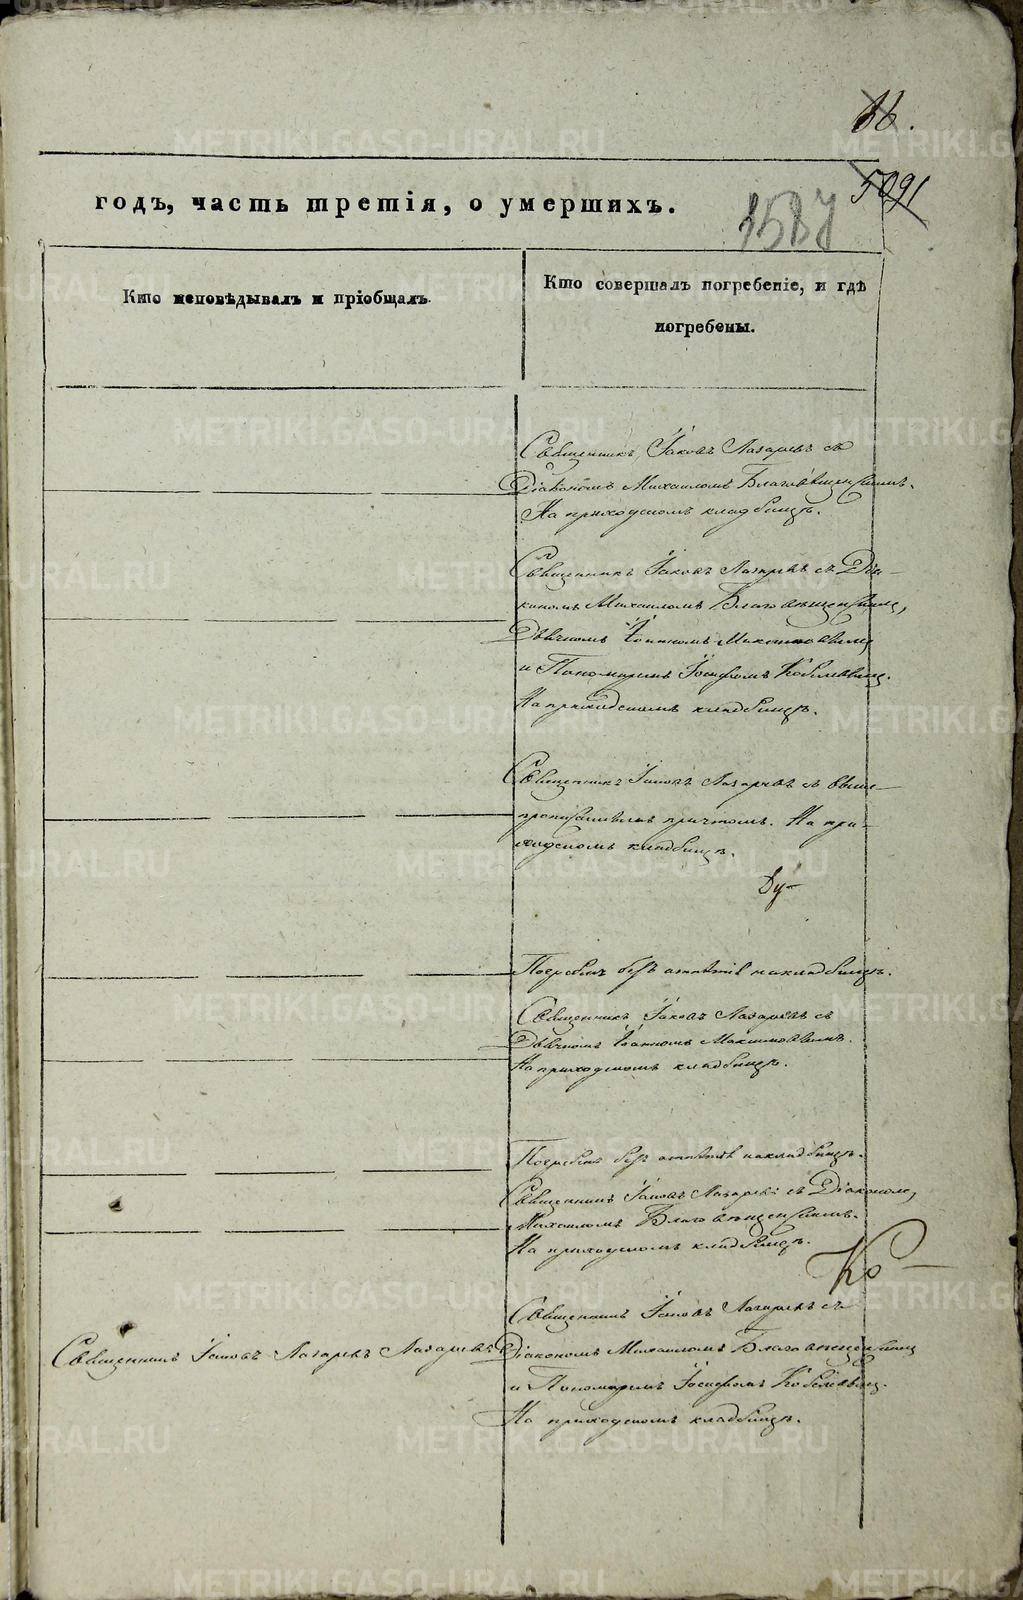 36.
5091
1587
годъ, часть третія, о умершихъ.
Кто исповѣдывалъ и пріобщалъ.
Кто совершалъ погребеніе, и гдѣ
погребены.
Священникъ Іаковъ Лазаревъ съ
Діакономъ Михаиломъ Благовѣщенскимъ.
На приходскомъ кладбищѣ.
Священникъ Іаковъ Лазаревъ съ Діа-
кономъ Михаиломъ Благовѣщенскимъ,
Дьячкомъ Іоанномъ Максимовымъ
и Пономаремъ Іосифомъ
На приходскомъ кладбищѣ.
Священникъ Іаковъ Лазаревъ съ выше-
прописаннымъ причтомъ. На при-
ходскомъ кладбищѣ.
Погребенъ безъ отпѣтія на кладбищѣ.
Священникъ Іаковъ Лазаревъ съ
Дьячкомъ Іоанномъ Максимовымъ.
На приходскомъ кладбищѣ.
Погребенъ безъ отпѣтія на кладбищѣ.
Священникъ Іаковъ Лазаревъ съ Діакономъ
Михаиломъ Благовѣщенскимъ.
На приходскомъ кладбищѣ.
Ко-
Священникъ Іаковъ Лазаревъ съ
Священникъ Іаковъ Лазаревъ Лазаревъ
Діакономъ Михаиломъ Благовѣщенскимъ
и Пономаремъ Іосифомъ
На приходскомъ кладбищѣ.
METRIKI.GASO-URAL.RU